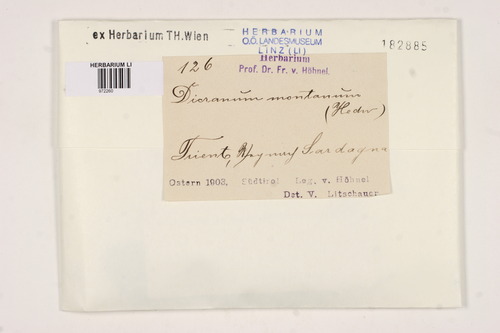 ex Herbarium TH.Wien
HERBARIUM
O.Ö. LANDESMUSEUM
LINZ (LI)
182885
HERBARIUM LI
126
Herbarium
Prof. Dr. Fr. v. Höhnel.
Dicranum montanum
(Hedw)
Trient, Weg nach Sardagna
Ostern 1903, Südtirol Leg. v. Höhnel
Det. V. Litschauer